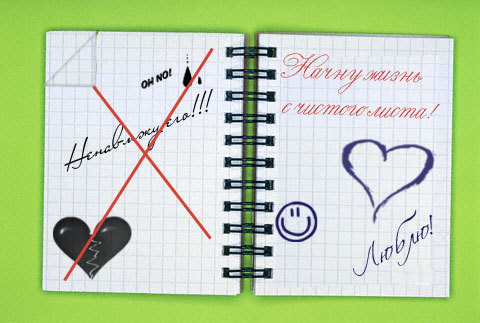 OH NO!
Ненавижу его!!!
Начну жизнь
с чистого листа!
Люблю!